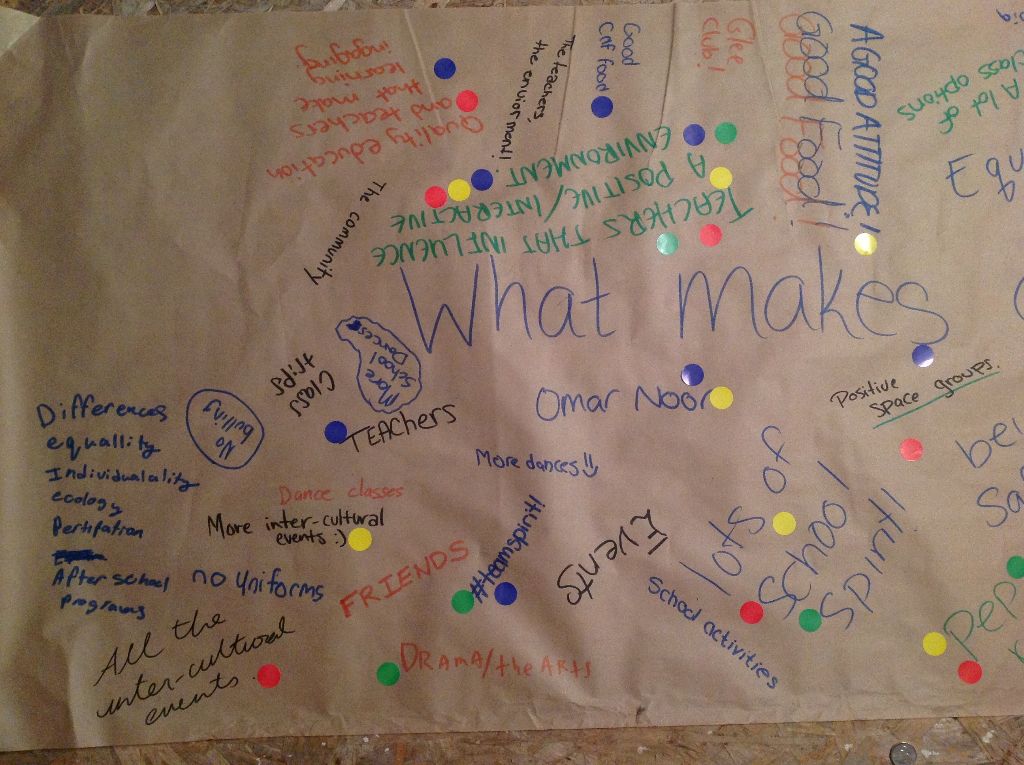 What makes
Quality education
and teachers
that make
learning
ingaging
The teachers,
the enviorment!
Good
Caf food
Glee
club!
Good Food!
Good Food!
A GOOD ATTITUDE!
A lot of
class options
The community
TEACHERS THAT INFLUENCE
A POSITIVE/INTERACTIVE
ENVIRONMENT
More
School
Dances
Class
trips
No
bulling
TEACHERS
Omar Noor
Positive
Space groups.
More dances!!
Differences
equallity
Individualality
ecology
After school
programs
Dance classes
More inter-cultural
events :)
no uniforms
FRIENDS
#teamsphinti
Events
School activities
lots of
School
Spirit!
All the
inter-cultural
events.
DRAMA/the ARTS